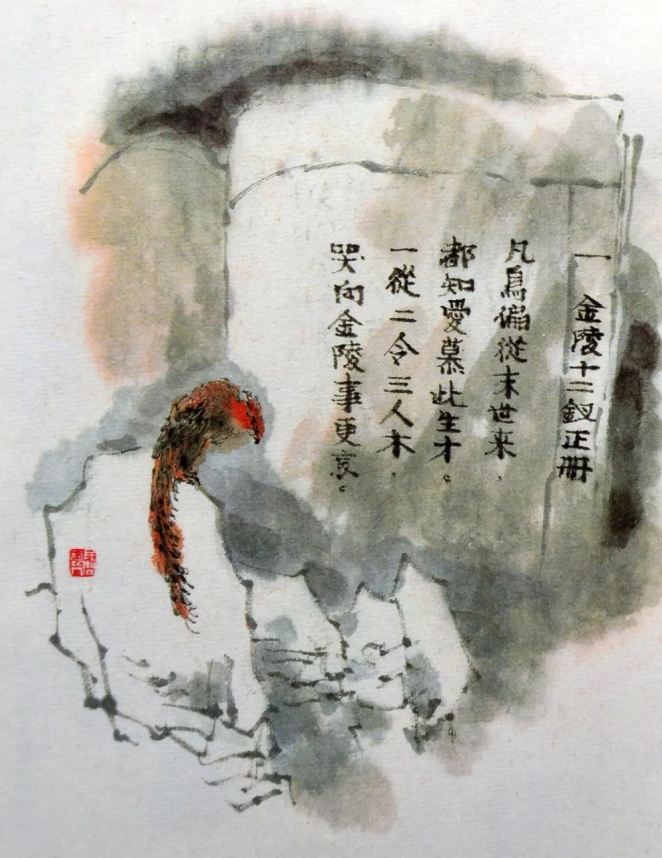 一 金陵十二釵正册
凡鳥偏從末世来，
都知愛慕此生才。
一從二令三人木，
哭向金陵事更哀。